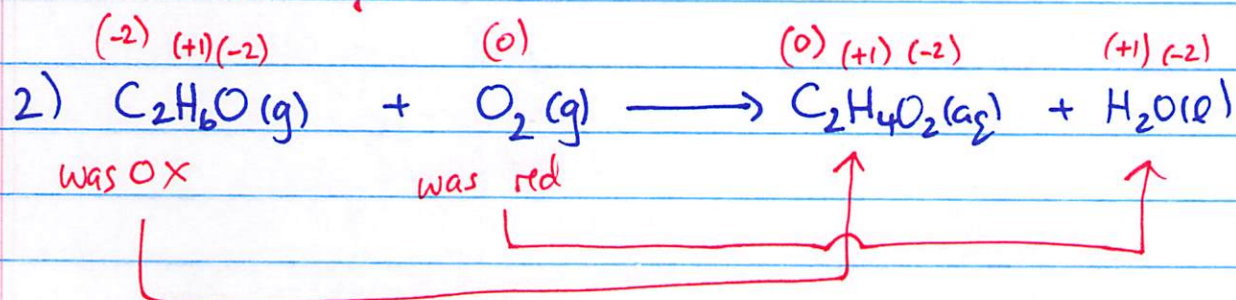 (-2) (+1)(-2) (0) (0) (+1) (-2) (+1) (-2)
2) C₂H₆O(g) + O₂(g) ⟶ C₂H₄O₂(aq) + H₂O(l)
was OX was red